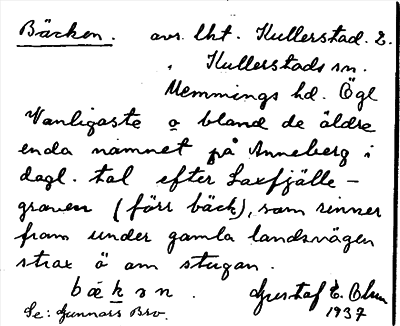 Bäcken. avs. lht. Kullerstad. 2.
Kullerstads sn.
Memmings hd. Ögl
Vanligaste o bland de äldre
enda namnet på Anneberg i
dagl. tal efter Laxfjälle-
graven (förr bäck), som rinner
fram under gamla landsvägen
strax ö om stugan.
Gustaf E. Blum
Se: Gunnars Bro. 1937